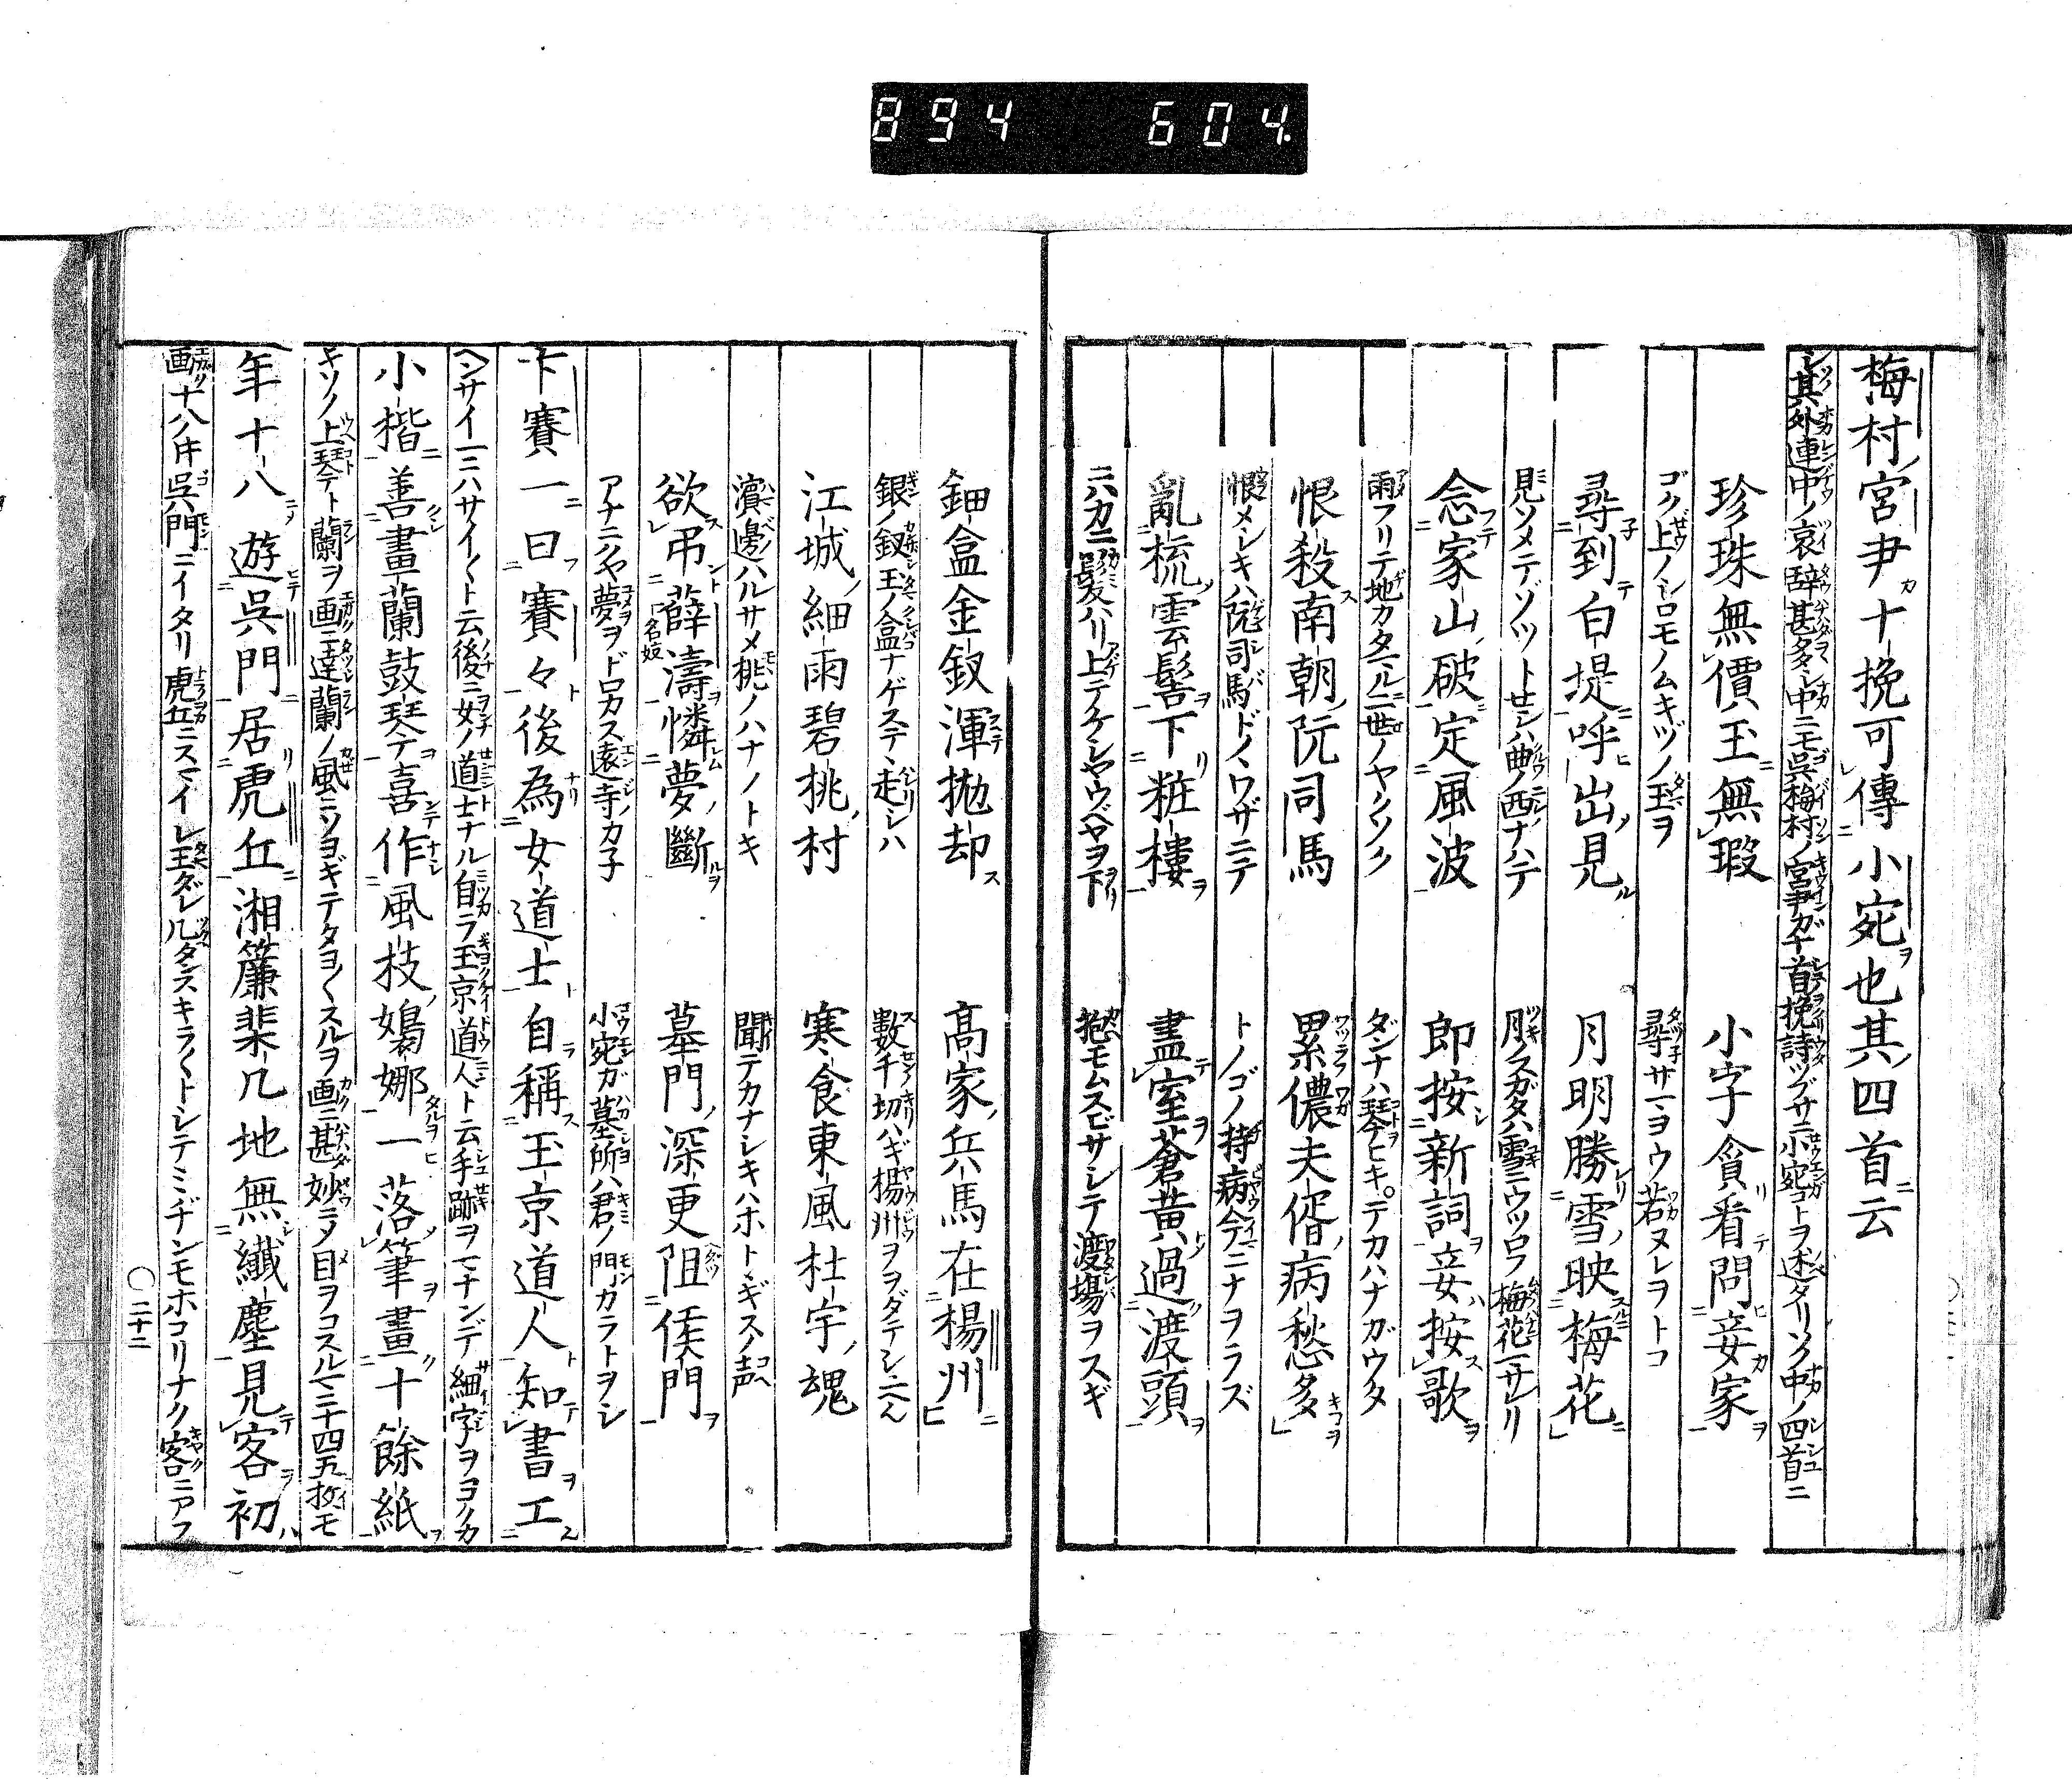 894 604.
梅村宮尹十挽可傳小宛也其四首云
シ其外連中ノ哀辞甚多シ中ニモ呉梅村ノ宮尹ガ十首挽詩ツブサニ小宛コトヲ述タリソノ中ノ四首ニ
珍珠無價玉無瑕 小字貪看問妾家
ゴク上ノシロモノムキヅノ玉ヲ 尋サマヨウ若ヌレヲトコ
尋到白堤呼出見 月明勝雪映梅花
見ソメテゾツトセシハ曲ノ西ナハテ 月ノスガタハ雪ニウツロフ梅花マサレリ
念家山破定風波 即按新詞妾按歌
雨フリテ地カタマル二世ノヤクソク ダンナハ琴ヒキ。テカハナガウタ
恨殺南朝阮司馬 累儂夫偦病愁多
恨メシキハ阮司馬ドノヽワザニテ トノゴノ持病今ニナヲラズ
亂梳雲髻下粧樓 盡室蒼黃過渡頭
ニハカニ髪ハリ上ゲケシヤウベヤヲ下リ 抱モムスビサシテ渡場ヲスギ
鈿盒金釵渾拋却 高家兵馬在楊州
銀ノ釵玉ノ盒ナゲステヽ走シハ 數千切ハギ楊州ヲヲダテシニヘん
江城細雨碧桃村 寒食東風杜宇魂
濵邊ハルサメ桃ノハナノトキ 聞テカナシキハホトヽギスノ声
欲吊薛濤憐夢斷 墓門深更阻侯門
名妓
アナニクヤ夢ヲドロカス遠寺ノカ子 小宛ガ墓所ハ君ノ門カラトヲシ
卞賽一曰賽々後為女道士自稱玉京道人知書工
ヘンサイ一ニハサイ〱ト云後ニ女ノ道士ナル自ラ玉京道人ト云手跡ヲマナンデ細字ヲヨクカ
小楷善畫蘭鼓琴喜作風枝嫋娜一落筆畫十餘紙
キソノ上琴ト蘭ヲ画ニ達蘭ノ風ニソヨギテタヨ〱スルヲ画ニ甚妙ニメ目ヲコスルマニ十四五枚モ
年十八遊呉門居虎丘湘簾棐几地無纖塵見客初
画十八ノ年呉門ニイタリ虎丘ニスマイシ玉ダレ几タンスキラ〱トシテミヂンモホコリナク客ニアフ
〇二十二